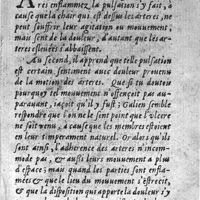 res enflammez, la pulsation s'y fait, à
cause que la chair qui est dessus les arteres, ne
peut souffrir leur agitation ou mouuement,
mais sent de la douleur, d'autant que les ar-
teres esleuées s'abbaissent.
Au second, il apprend que telle pulsation
est certain sentiment auec douleur prouenu
de la motion des arteres. Que si tu doutois
pourquoy tel mouuement n'offençoit pas au-
parauant, reçoit qu'il y fust; Galien semble
respondre que l'on ne le sent point que l'vlcere
ne soit venu, à cause que les membres estoient
en leur temperament naturel. Or alors qu'ils
sont ainsi, l'adherence des arteres n'incom-
mode pas, & aussi leurs mouuement a plus
d'espace; mais quand les parties sont enfla-
mées & que le lieu du mouuement s'estrecit,
& que la disposition qui apporte la douleur s'y